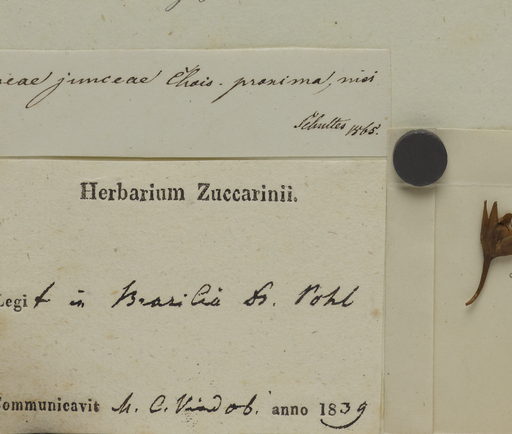 eae junceae Chois. proxima, nisi
Schultes 1865.
Herbarium Zuccarinii.
Legit in Brasilia Dr. Pohl
Communicavit M. C. Vindob. anno 1839